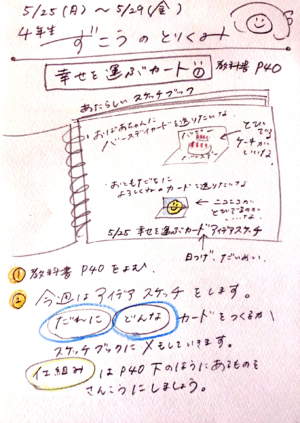 5/25(月)～5/29(金)
4年生 ずこうのとりくみ
幸せを運ぶカード① 教科書 P40
あたらしいスケッチブック
おばあちゃんに
バースデイカードを送りたいな
とびでる
ケーキが
いいな。
おともだちに
よろしくねのカードを送りたいな
ニコニコの
いいな。
5/25 幸せを運ぶカードアイデアスケッチ
日づけ、だいめい。
① 教科書 P40をよむ。
② 今週はアイデアスケッチをします。
だれに どんな カードをつくるか
スケッチブックにメモしていきます。
仕組み は P40 下のほうにあるものを
さんこうにしましょう。